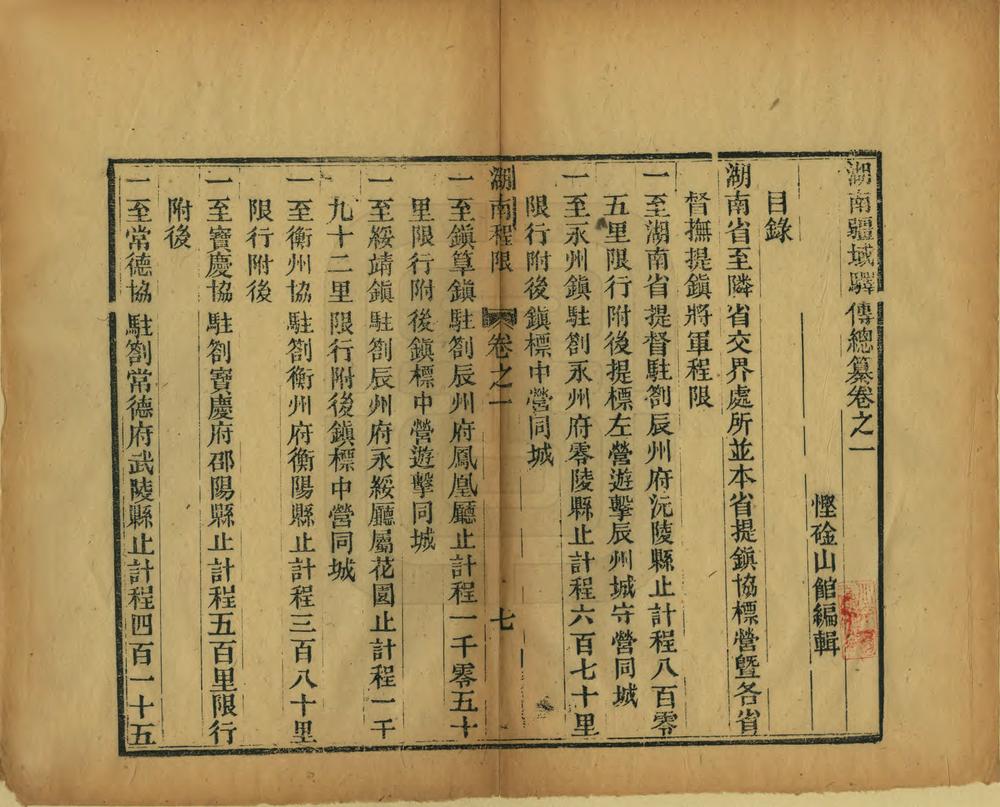 湖南疆域驛傳總纂卷之一
慳硷山館編輯
目錄
湖南省至隣省交界處所並本省提鎮協標營暨各省
督撫提鎮將軍程限
一至湖南省提督駐劄辰州府沅陵縣止計程八百零
五里限行附後提標左營遊擊辰州城守營同城
一至永州鎮駐劄永州府零陵縣止計程六百七十里
限行附後鎮標中營同城
湖南程限 卷之一 七
一至鎮筸鎮駐劄辰州府鳳凰廳止計程一千零五十
里限行附後鎮標中營遊擊同城
一至綏靖鎮駐劄辰州府永綏廳屬花園止計程一千
九十二里限行附後鎮標中營同城
一至衡州協駐劄衡州府衡陽縣止計程三百八十里
限行附後
一至寶慶協駐劄寶慶府邵陽縣止計程五百里限行
附後
一至常德協駐劄常德府武陵縣止計程四百一十五